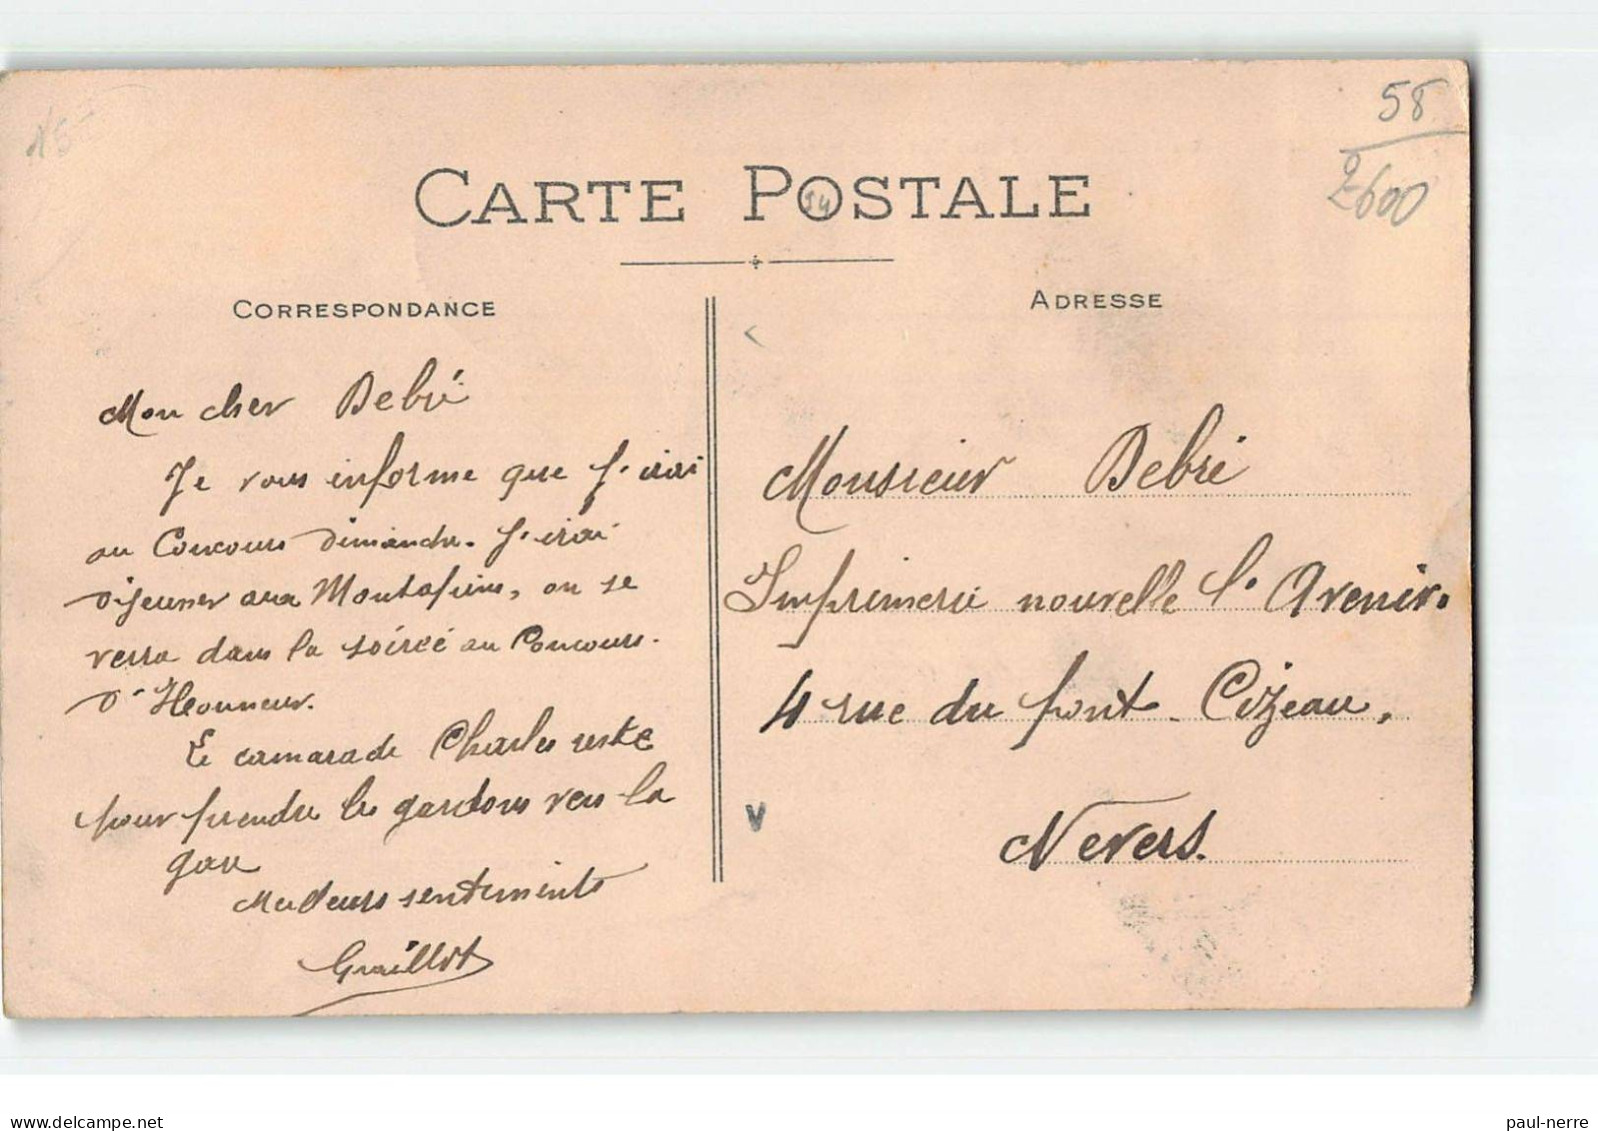 15
58
2600
CARTE POSTALE
54
CORRESPONDANCE
ADRESSE
Mon cher Debré
Je vous informe que j'irai
au Concours Dimanche. j'irai
déjeuner aux Montapins, on se
verra dans la soirée au Concours
d'Honneur.
Le camarade Charles reste
pour prendre les gardons vers la
gare
Meilleurs sentiments
Graillot
Monsieur Debré
Imprimerie nouvelle l'Avenir.
4 rue du pont Cizeau,
Nevers.
V
paul-nerre